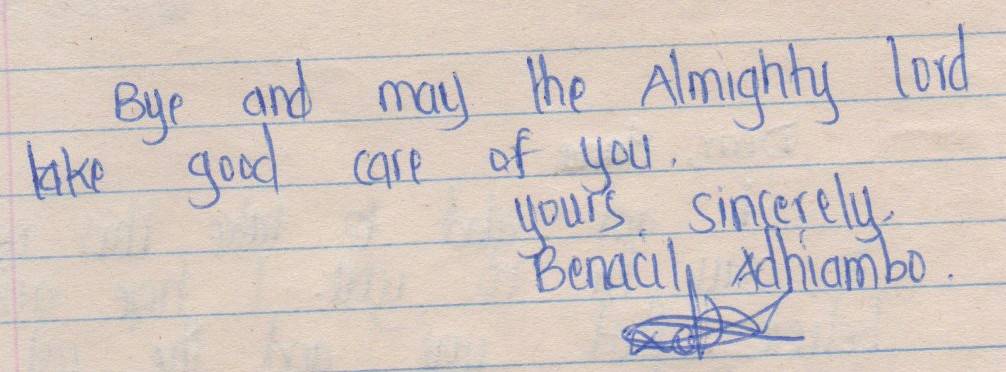 Bye and may the Almighty lord
take good care of you.
yours, sincerely.
Benacil Adhiambo.